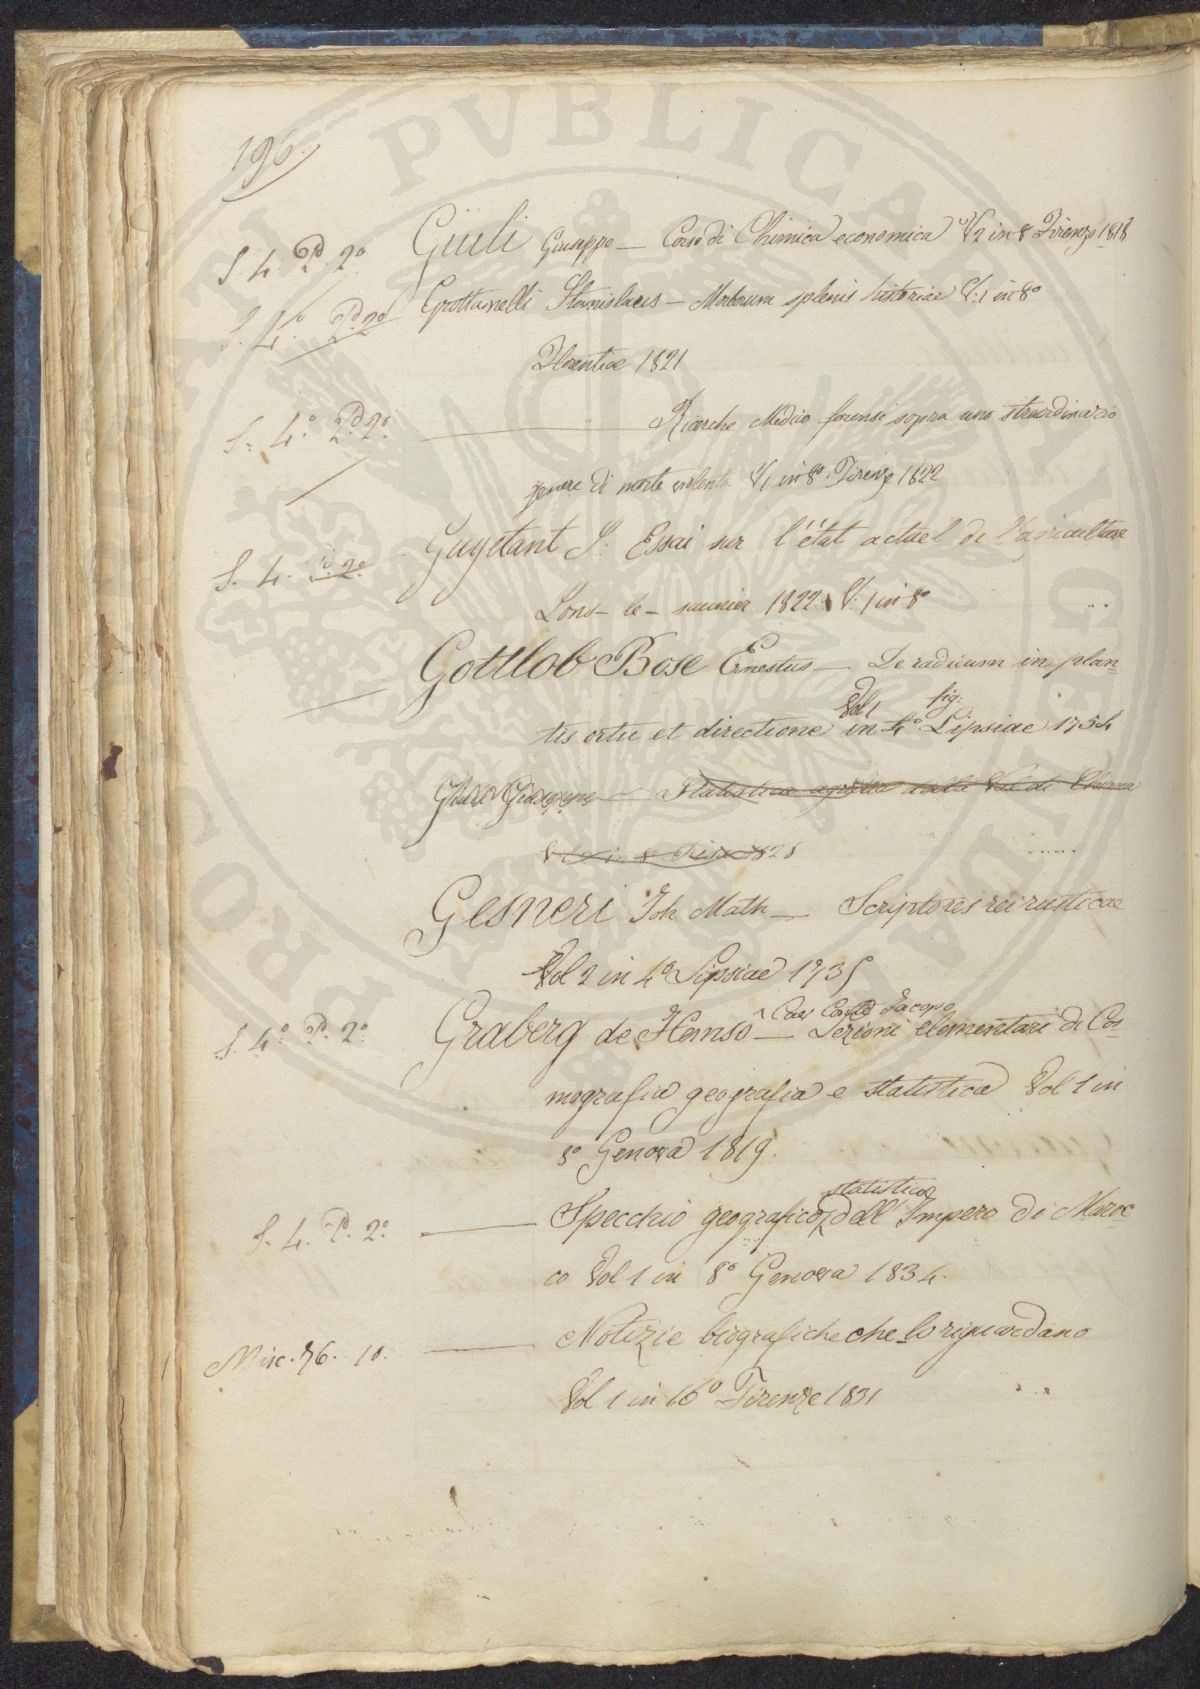 196.
S. 4. Pd 2º Giuli Giuseppe — Corso di Chimica economica V 2 in 8 Firenze 1818
S. 4º Pd 2º Grottanelli Stanislaus — Morborum splenis historiae V. 1 in 8º
Florentiae 1821
S. 4º Pd 2º — Ricerche Medico forensi sopra uno straordinario
genere di morte violenta V 1 in 8º Firenze 1822
S. 4. Pd 2º Guyetant S. Essai sur l'état actuel de l'agriculture
Lons-le-saunier 1822 V. 1 in 8º
Gottlob Bose Ernestus — De radicum in plan-
Vol 1 fig.
tis ortu et directione in 4º Lipsiae 1754
Giuseppe — Statistica della Val di Chiana
1828
Gesneri Joh Math — Scriptores rei rusticae
Vol 2 in 4º Lipsiae 1735
Cav Conte Jacopo
S. 4º P. 2º Graberg de Hemso — Lezioni elementari di Cos-
mografia geografia e statistica Vol 1 in
8º Genova 1819.
statistico
S. 4. P. 2º — Specchio geografico dell' Impero di Maroc-
co Vol 1 in 8º Genova 1834.
Misc. 76. 10. — Notizie biografiche che lo riguardano
Vol 1 in 16º Firenze 1831